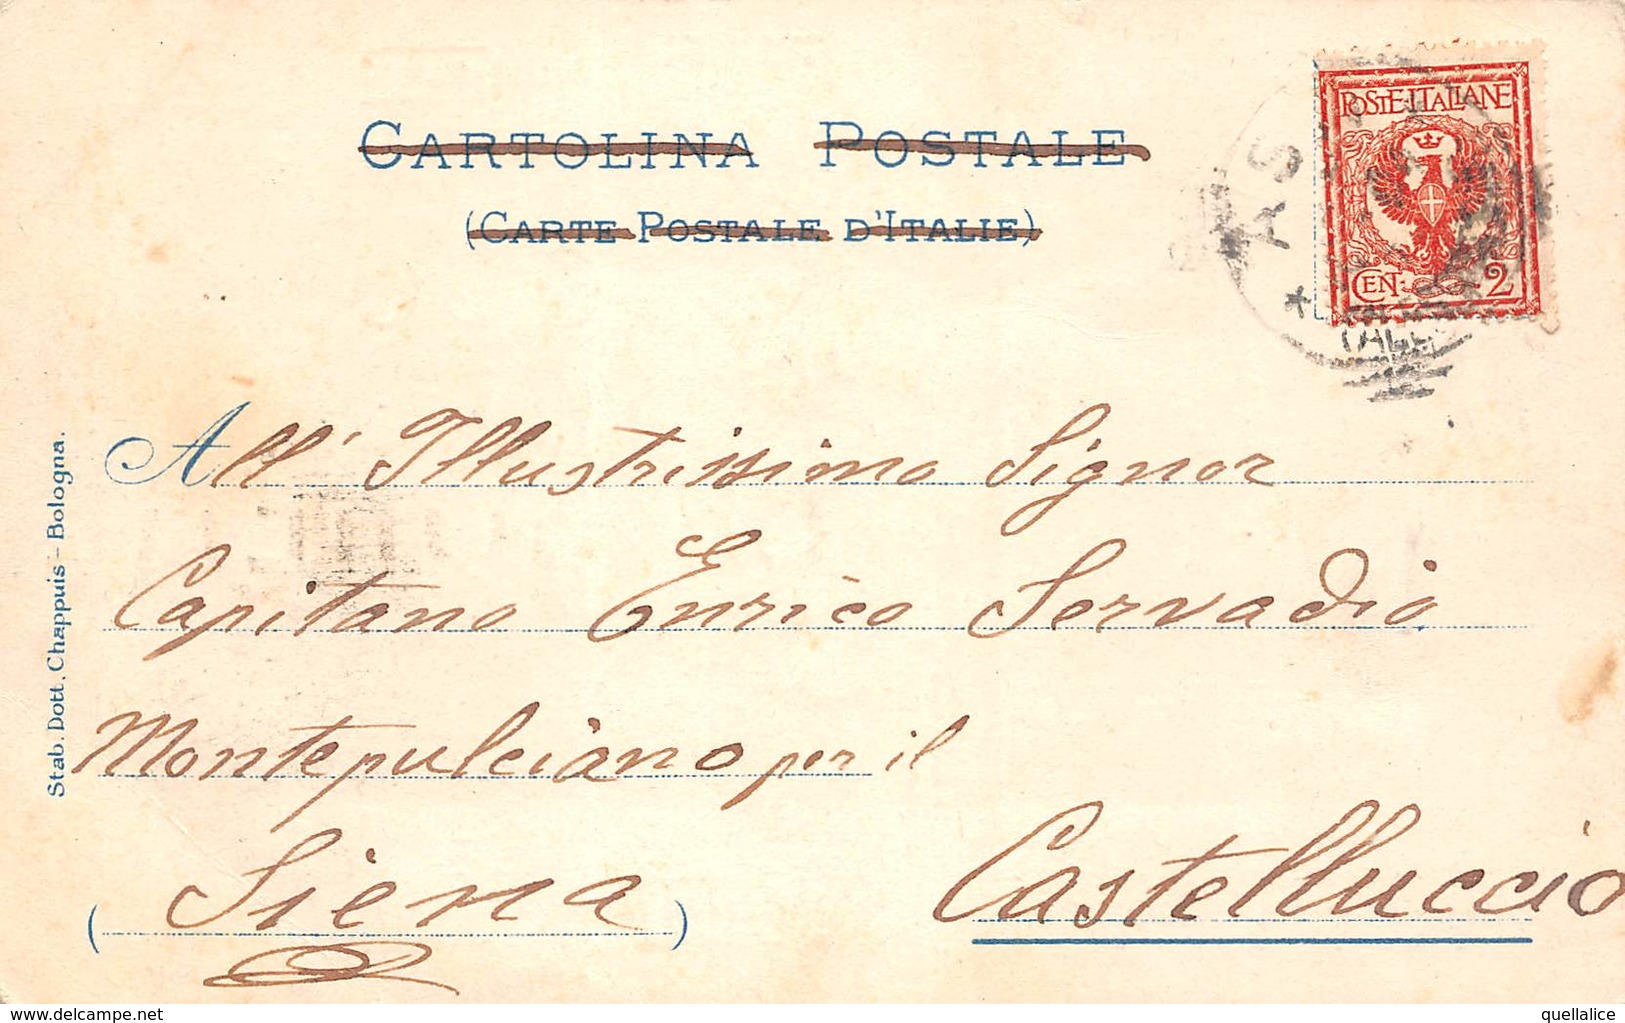 CARTOLINA POSTALE
(CARTE POSTALE D'ITALIE)
POSTE·ITALIANE
CENT: 2
All' Illustrissimo Signor
Capitano Enrico Servadio
Montepulciano per il
Castelluccio
(Siena)
Stab. Dott. Chappuis – Bologna.
www.delcampe.net
quellalice